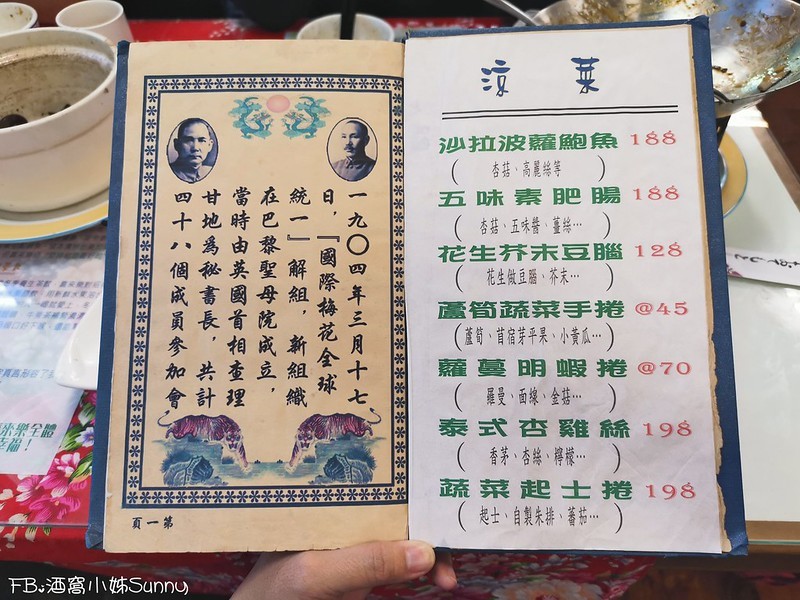 一九〇四年三月十七
日，『國際梅花全球
統一』解組，新組織
在巴黎聖母院成立，
當時由英國首相查理
甘地為秘書長，共計
四十八個成員參加會
第一頁
涼菜
沙拉波蘿鮑魚 188
（杏菇、高麗絲等）
五味素肥腸 188
（杏菇、五味醬、薑絲…）
花生芥末豆腦 128
（花生做豆腦、芥末…）
蘆筍蔬菜手捲 @45
（蘆筍、苜宿芽平果、小黃瓜…）
蘿蔓明蝦捲 @70
（羅曼、面線、金菇…）
泰式杏雞絲 198
（香茅、杏絲、檸檬…）
蔬菜起士捲 198
（起士、自製朱排、蕃茄…）
來樂全體
幸福！
FB:酒窩小姊Sunny